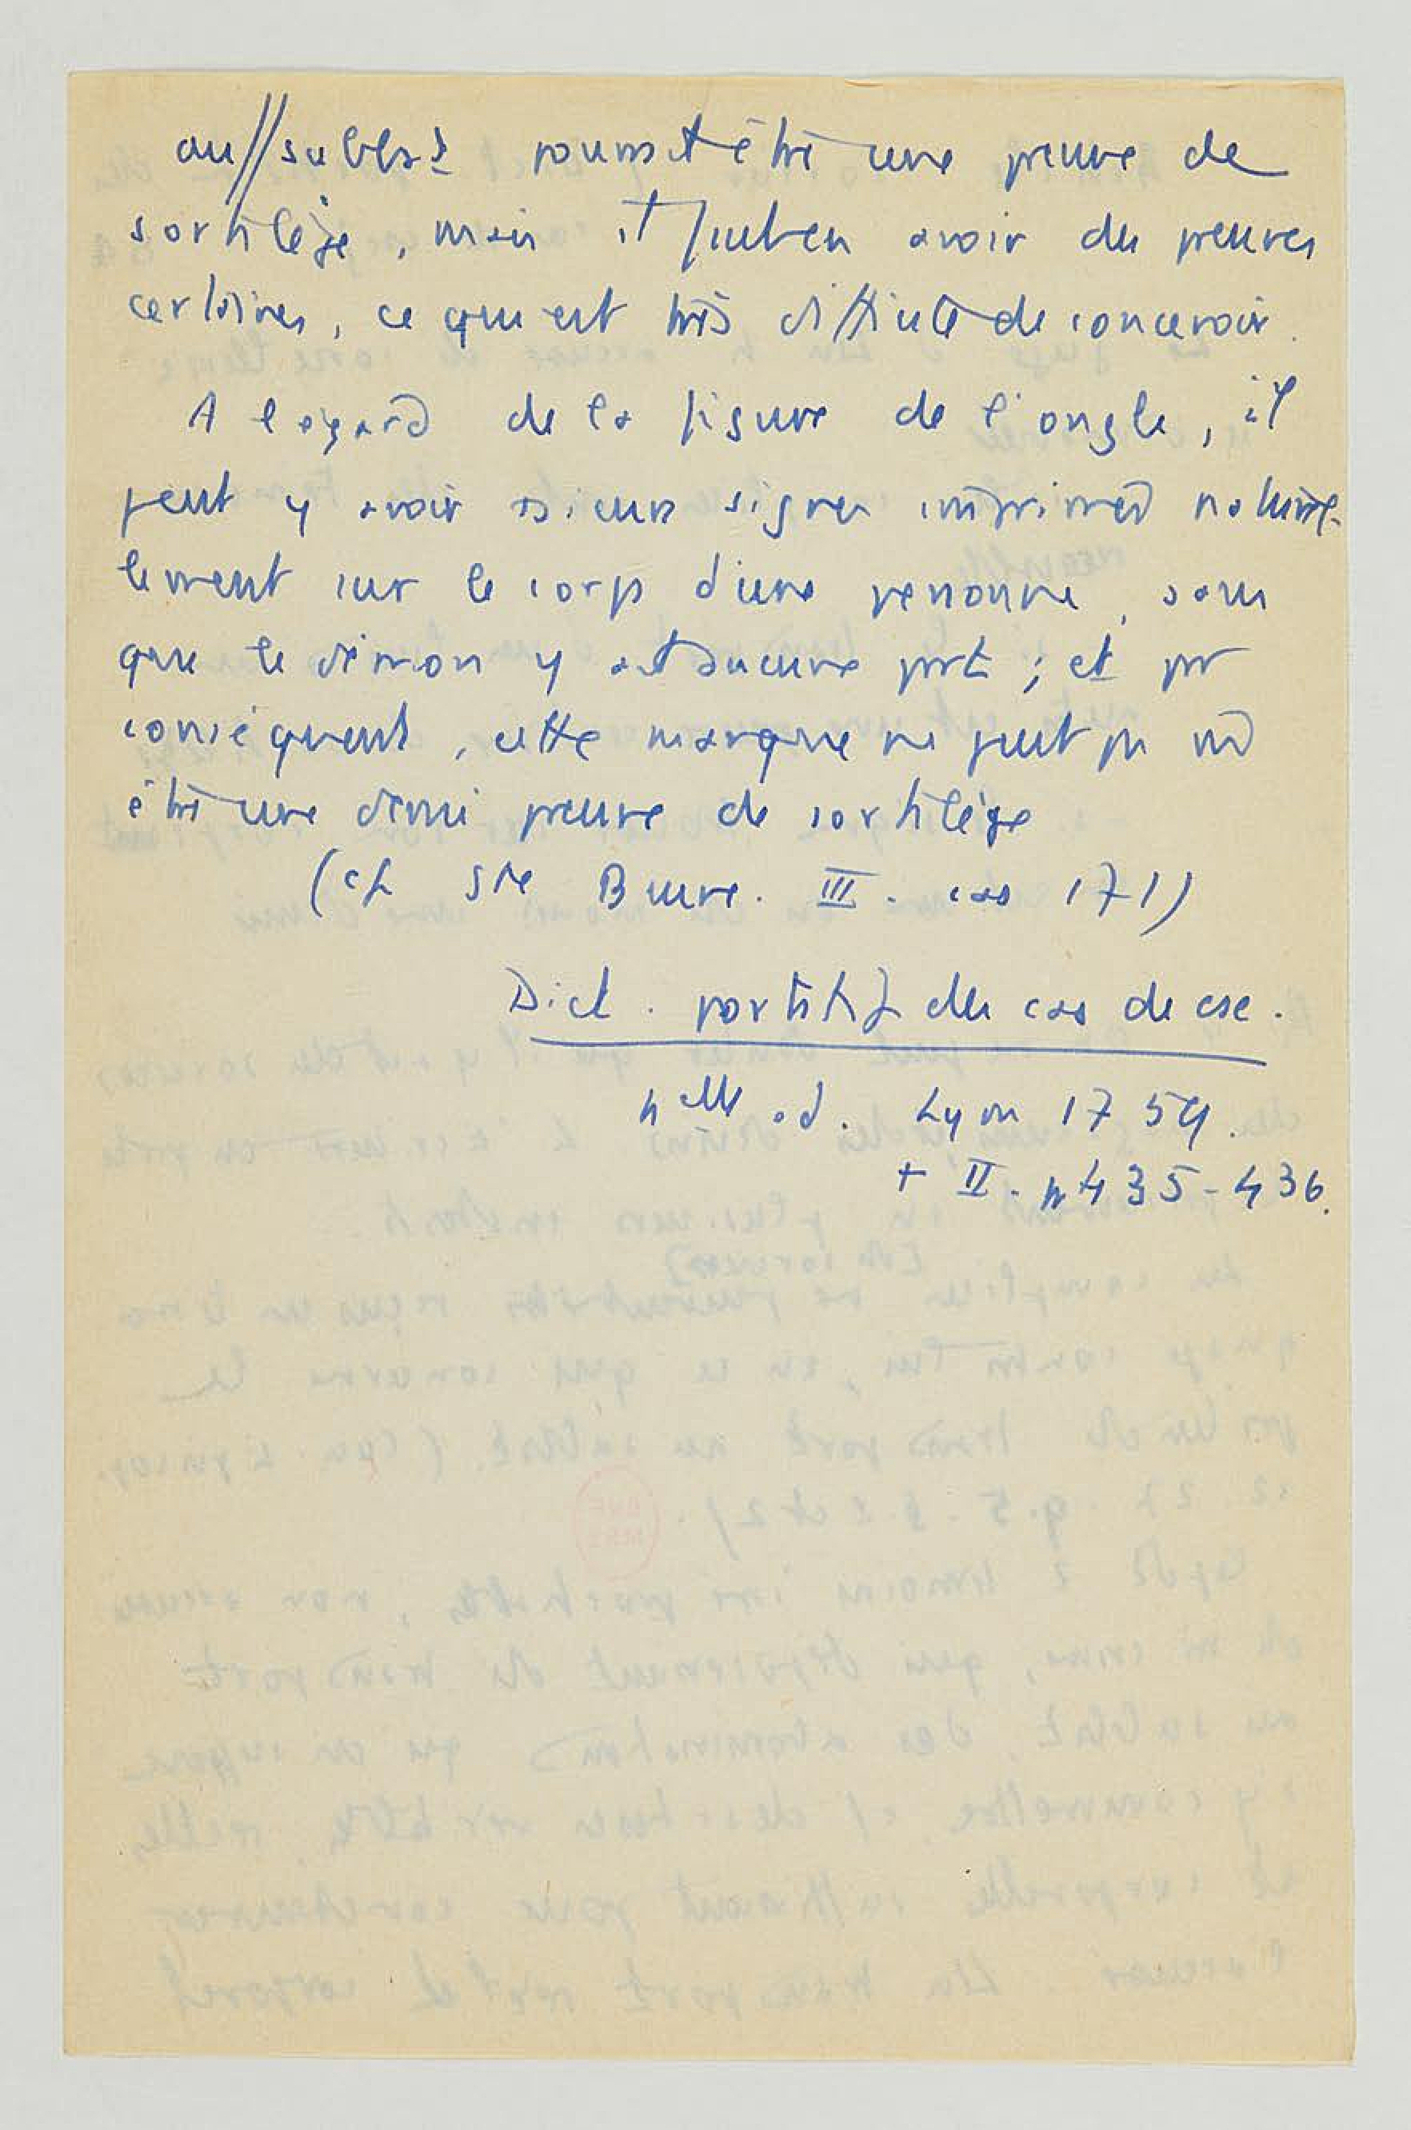 au // sabbat pourrait être une preuve de
sortilège, mais il faut en avoir des preuves
certaines, ce qui est très difficile de concevoir.
A l'égard de la figure de l'ongle, il
peut y avoir signes imprimés naturel-
lement sur le corps d'une personne, sans
que le démon y ait aucune part ; et par
conséquent, cette marque ne peut pas
être une demi preuve de sortilège
(cf Ste Beuve. III. cas 171)
Dict. portatif des cas de csc.
nelle éd. Lyon 1759.
t II. p 435-436.